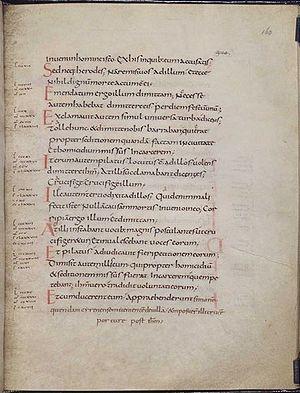 160
inueni in homine isto Ex his in quib eum accusatis
Sed neq herodes Nam remisi uos ad illum Et ecce
Nihil dignum morte actum est ei
Emendatum ergo illum dimittam Necesse
autem habebat dimittere eis per diem festū unū
Exclamauit autem simul uniuersa turba dicens
Tolle hunc & dimitte nobis barabban qui erat
propter seditionem quandā factā in ciuitate
Et homicidium missus In carcerem
Iterum autem pilatus locutus est ad illos uolens
dimittere ihm At illi succlamabant dicentes
Crucifige Crucifige illum
Ille autem tertio dixit ad illos Quid enim mali
fecit iste Nullam causam mortis inuenio in eo Cor
ripiam ergo illum et dimittam
At illi instabant uocib magnis postulantes ut cru
cifigeretur Et inualescebant uoces eorum
Et pilatus adiudicauit fieri petitionem eorum
Dimisit autem illum Qui propter homicidiū
& seditionem missus fuerat In carcerem quem pe
tebant ihm uero tradidit uoluntati eorum
Et cum ducerent eum Appraehenderunt simonē
quendam cyrenensem uenientem de uilla & imposuer illi cruce
portare post ihm